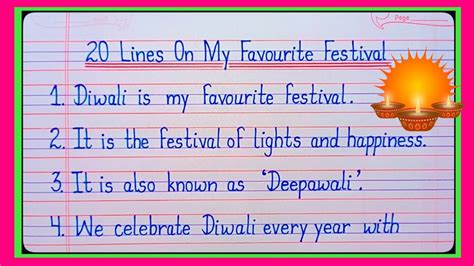 Page
20 Lines On My Favourite Festival
1. Diwali is my favourite festival.
2. It is the festival of lights and happiness.
3. It is also known as 'Deepawali'.
4. We celebrate Diwali every year with